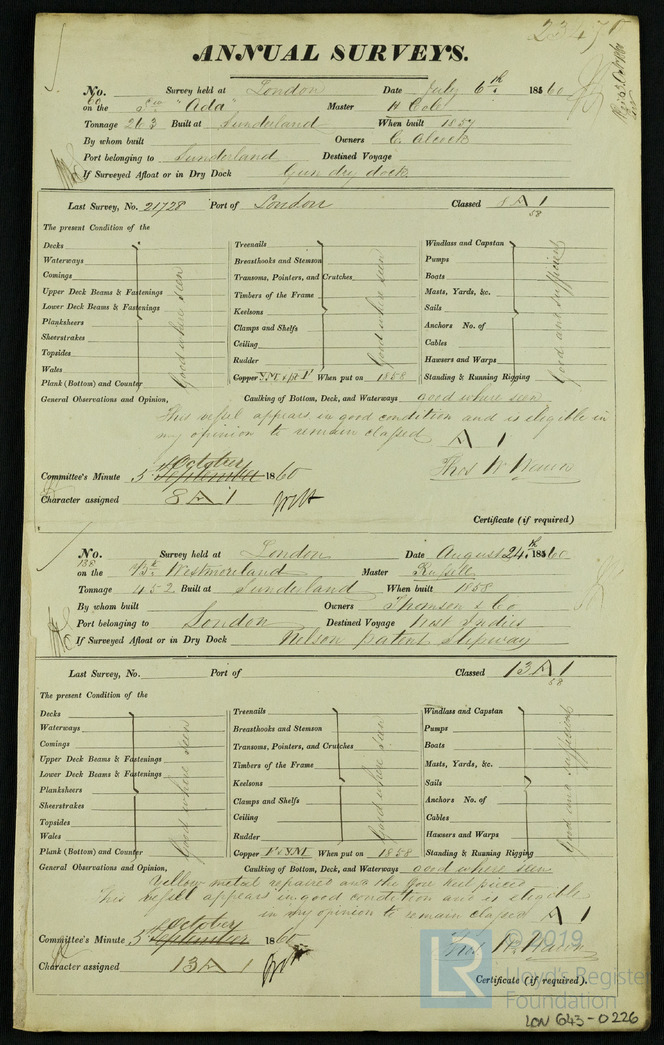 23475
ANNUAL SURVEYS.
No. 60 Survey held at London Date July 6th 1860
on the "Ada" Master H Cole
Tonnage 263 Built at Sunderland When built 1857
By whom built Owners C. Alcock
Port belonging to Sunderland Destined Voyage
If Surveyed Afloat or in Dry Dock Gun dry dock
Last Survey, No. 21728 Port of London Classed 8 A 1
58
The present Condition of the
Decks Treenails Windlass and Capstan
Waterways Breasthooks and Stemson Pumps
Comings Transoms, Pointers, and Crutches Boats
Upper Deck Beams & Fastenings Timbers of the Frame Masts, Yards, &c.
Lower Deck Beams & Fastenings Keelsons Sails
Planksheers Clamps and Shelfs Anchors No. of
Sheerstrakes Ceiling Cables
Topsides Rudder Hawsers and Warps
Wales Copper When put on 1858 Standing & Running Rigging
Plank (Bottom) and Counter
Good where seen
Good where seen
Good and sufficient
General Observations and Opinion, Caulking of Bottom, Deck, and Waterways good where seen
This vessel appears in good condition and is eligible in
my opinion to remain classed A 1
Committee's Minute 5 October September 1860 Thos W Wawn
Character assigned 8 A 1
Certificate (if required)
No. 138 Survey held at London Date August 24th 1860
on the Westmoreland Master Russell
Tonnage 452 Built at Sunderland When built 1858
By whom built Owners Thomson & Co
Port belonging to London Destined Voyage West Indies
If Surveyed Afloat or in Dry Dock Nelson patent Slipway
Last Survey, No. Port of Classed 13 A 1
58
The present Condition of the
Decks Treenails Windlass and Capstan
Waterways Breasthooks and Stemson Pumps
Comings Transoms, Pointers, and Crutches Boats
Upper Deck Beams & Fastenings Timbers of the Frame Masts, Yards, &c.
Lower Deck Beams & Fastenings Keelsons Sails
Planksheers Clamps and Shelfs Anchors No. of
Sheerstrakes Ceiling Cables
Topsides Rudder Hawsers and Warps
Wales Copper F & YM When put on 1858 Standing & Running Rigging
Plank (Bottom) and Counter
Good where seen
Good where seen
Good and sufficient
General Observations and Opinion, Caulking of Bottom, Deck, and Waterways good where seen
Yellow metal repaired and the fore keel pieced
This vessel appears in good condition and is eligible
in my opinion to remain classed A 1
Committee's Minute 5 October September 1860 Thos W Wawn
Character assigned 13 A 1
Certificate (if required).
LR © 2019
Lloyd's Register
Foundation
LON 643-0226